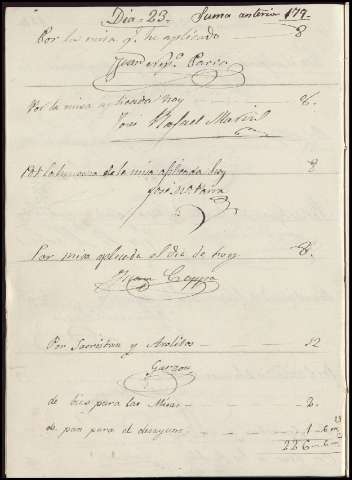 Dia - 23. Suma anterior 179-
Por la misa q.e he aplicado 8
Juan Parra
Por la misa aplicada hoy 8.
José Rafael Marvil
Por la limosna de la misa aplicada hoy 8
José Notarra
Por misa aplicada el dia de hoy 8.
Juan Coppa
Por Sacristan y Acolitos 12
Garzon
de para las Misas 2.
de pan para el desayuno 1-6
226-6